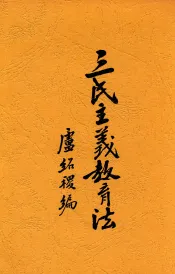 三民主義教育法
盧紹稷編